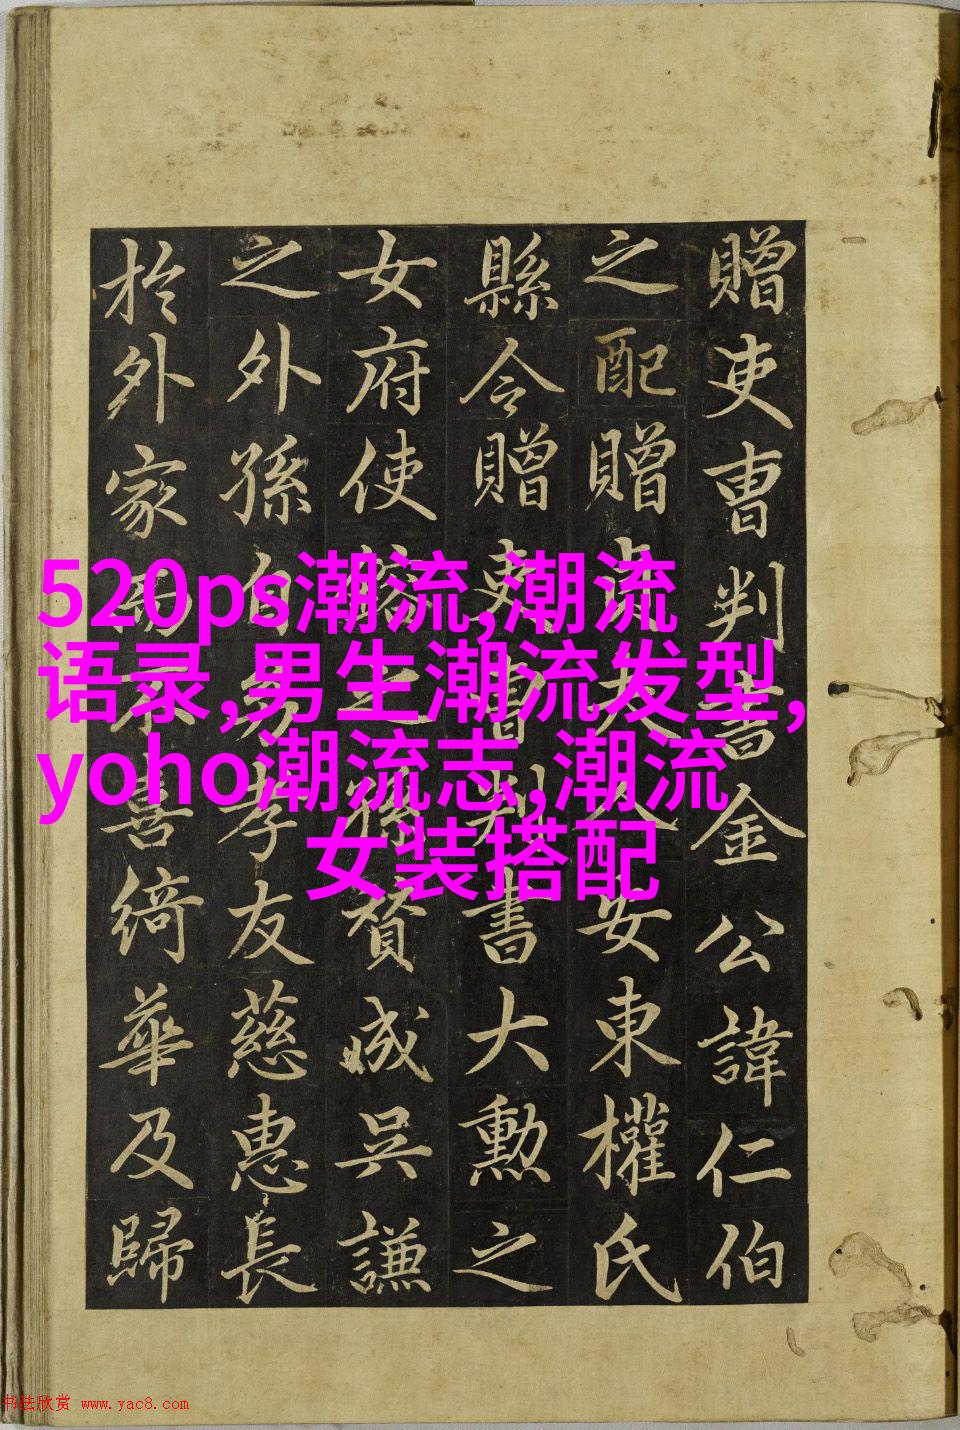 贈吏曹判書金公諱仁伯
之配贈貞夫人安東權氏
縣令贈吏曹判書大勲之
女府使之孫成吳謙
之外孫自幼孝友慈惠長
於外家而不喜綺華及歸
520ps潮流,潮流
语录,男生潮流发型,
yoho潮流志,潮流
女装搭配
书法欣赏 www.yac8.com